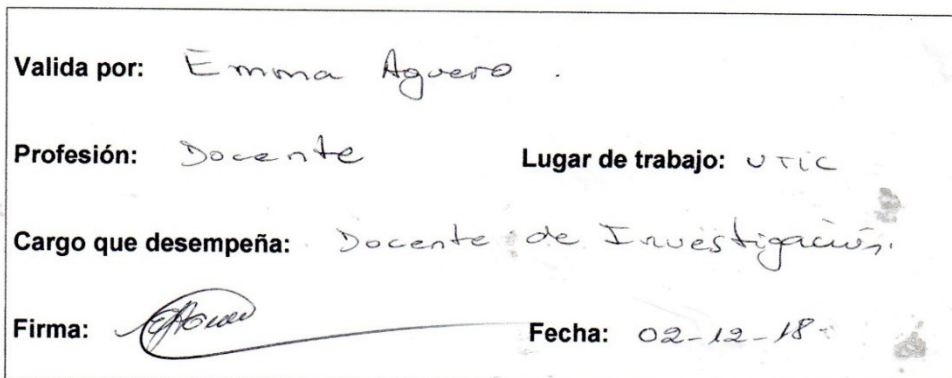 Valida por: Emma Aguero.
Profesión: Docente Lugar de trabajo: UTIC
Cargo que desempeña: Docente de Investigación.
Firma: EAguero Fecha: 02-12-18